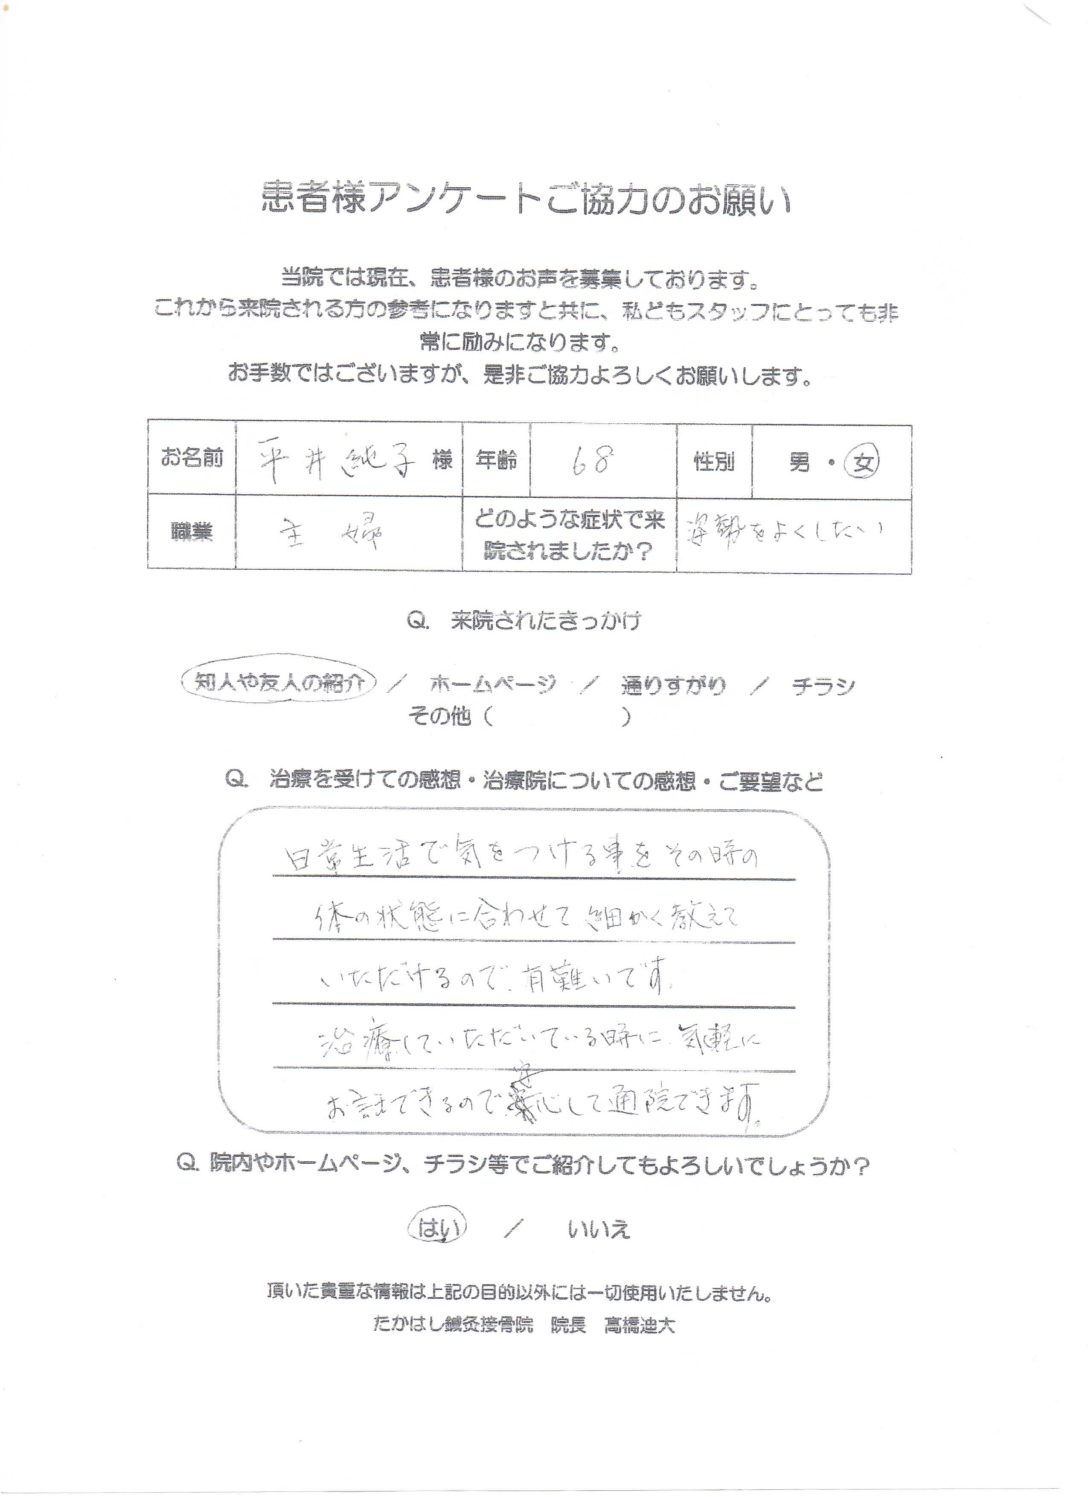 患者様アンケートご協力のお願い
当院では現在、患者様のお声を募集しております。
これから来院される方の参考になりますと共に、私どもスタッフにとっても非
常に励みになります。
お手数ではございますが、是非ご協力よろしくお願いします。
お名前 平井純子 様 年齢 68 性別 男・女
職業 主婦 どのような症状で来院されましたか？ 姿勢をよくしたい
Q. 来院されたきっかけ
知人や友人の紹介 / ホームページ / 通りすがり / チラシ
その他（ ）
Q. 治療を受けての感想・治療院についての感想・ご要望など
日常生活で気をつける事をその時の
体の状態に合わせて細かく教えて
いただけるので、有難いです。
治療していただいている時に、気軽に
お話できるので安心して通院できます。
Q. 院内やホームページ、チラシ等でご紹介してもよろしいでしょうか？
はい / いいえ
頂いた貴重な情報は上記の目的以外には一切使用いたしません。
たかはし鍼灸接骨院 院長 高橋迪大